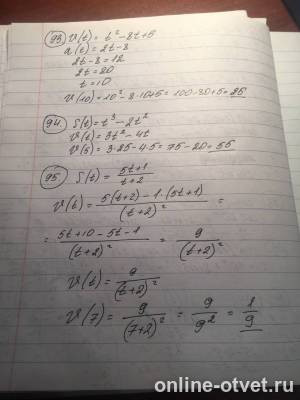 93 V(t) = t² - 8t + 5
a(t) = 2t - 8
2t - 8 = 12
2t = 20
t = 10
V(10) = 10² - 8·10 + 5 = 100 - 80 + 5 = 25
94 S(t) = t³ - 2t²
V(t) = 3t² - 4t
V(5) = 3·25 - 4·5 = 75 - 20 = 55
95 S(t) = (5t+1)/(t+2)
V(t) = (5(t+2) - 1·(5t+1))/(t+2)² =
= (5t+10-5t-1)/(t+2)² = 9/(t+2)²
V(t) = 9/(t+2)²
V(7) = 9/(7+2)² = 9/9² = 1/9
online-otvet.ru